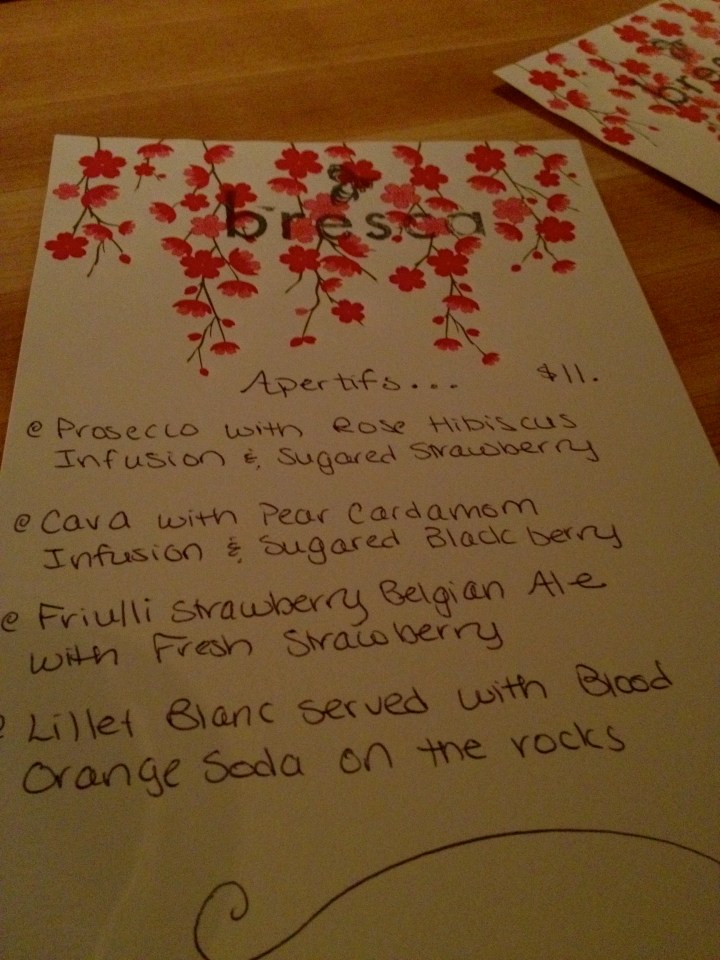 bresca
bres
Apertifs... $11.
@ Prosecco with Rose Hibiscus
Infusion & Sugared Strawberry
@ Cava with Pear Cardamom
Infusion & Sugared Blackberry
@ Friulli Strawberry Belgian Ale
with Fresh Strawberry
@ Lillet Blanc served with Blood
Orange Soda on the rocks